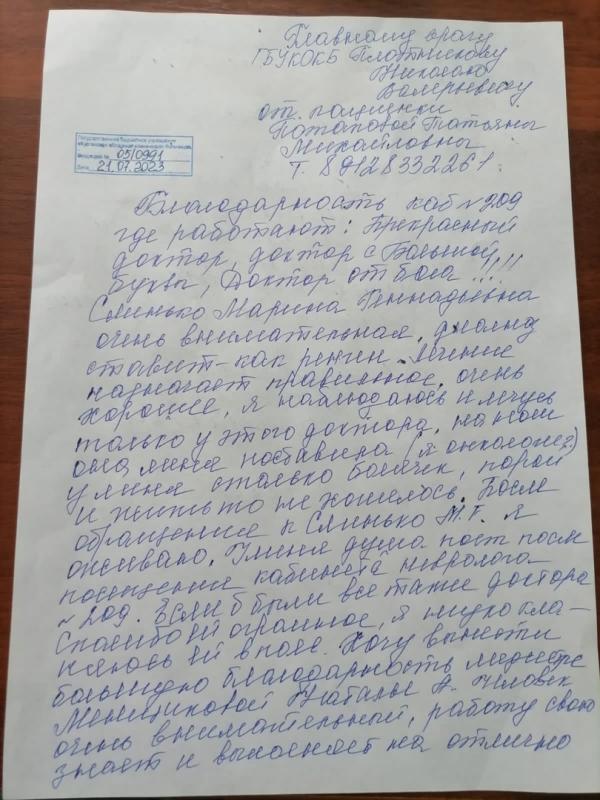 Главному врачу
ГБУКОКБ Плотникову
Николаю
Валерьевичу
от. пациентки
Потаповой Татьяны
Михайловны
т. 89128332261
Государственное бюджетное учреждение
05/0991
Дата 21.07.2023
Благодарность каб №209
где работают: Прекрасный
доктор, доктор с Большой
буквы, Доктор от бога !!!!
Слинько Марина Геннадьевна
очень внимательная, диагноз
ставит-как ренген. Лечение
назначает правильное, очень
хорошее, я наблюдаюсь и лечусь
только у этого доктора, на ноги
она меня поставила (я онкология)
у меня столько болячек, порой
и жить то не хотелось. После
обращение к Слинько М.Г. я
оживаю. У меня душа поёт после
посещение кабинета невролога
№209. Если б были все такие доктора
Спасибо ей огромное, я низко кла-
няюсь ей в пояс. Хочу вынести
большую благодарность медсестре
Менщиковой Наталье А. Человек
очень внимательный, работу свою
знает и выполняет на отлично